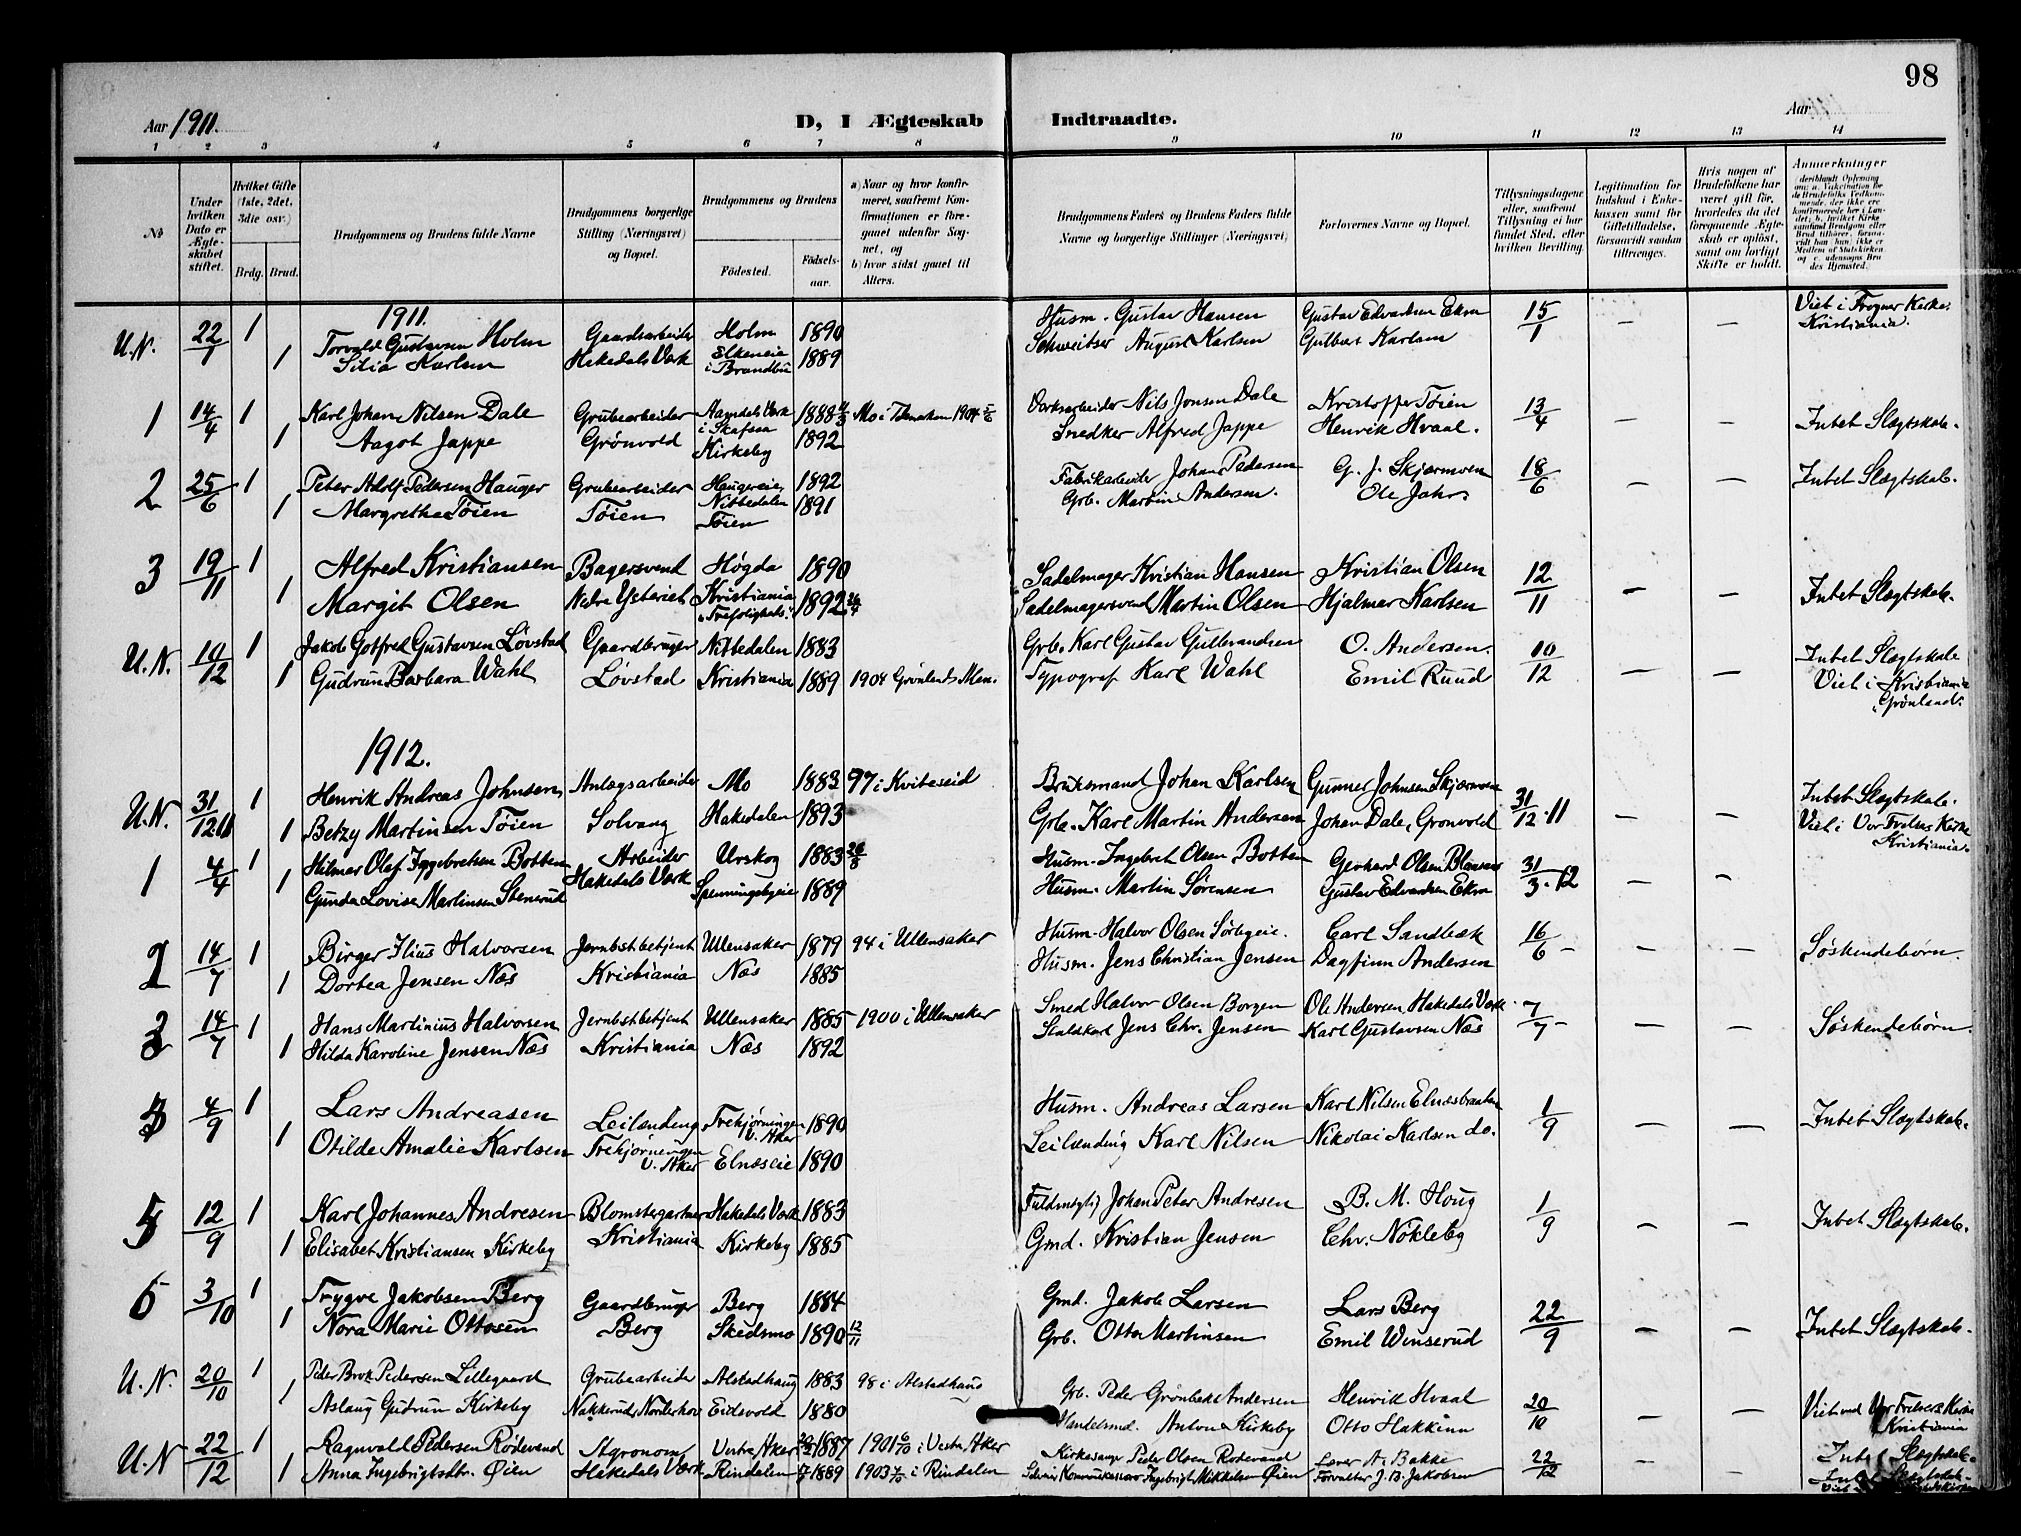 98
Aar 1911.
D, I Ægteskab Indtraadte.
Aar
1 2 3 4 5 6 7 8 9 10 11 12 13 14
No
Under hvilken Dato er Ægteskabet stiftet.
Hvilket Gifte (1ste, 2det, 3die osv.)
Brdg. Brud.
Brudgommens og Brudens fulde Navne
Brudgommens borgerlige Stilling (Næringsvei) og Bopæl.
Brudgommens og Brudens
Fødested.
Fødselsaar.
a) Naar og hvor konfirmeret, saafremt Konfirmationen er foregaaet udenfor Sognet, og
b) hvor sidst gaaet til Alters.
Brudgommens Faders og Brudens Faders fulde Navne og borgerlige Stillinger (Næringsvei)
Forlovernes Navne og Bopæl.
Tillysningsdagene eller, saafremt Tillysning ei har fundet Sted, efter hvilken Bevilling.
Legitimation for Indskud i Enkekassen samt for Giftetilladelse, forsaavidt saadan tiltrænges.
Hvis nogen af Brudefolkene har været gift før, hvorledes da det foregaaende Ægteskab er opløst, samt om lovligt Skifte er holdt.
Anmerkninger
1911.
U.N. 22/1 1 Torvald Gustavsen Holm Gaardsarbeider Holm 1890 Husm. Gustav Hansen Gustav Edvardsen Ekra 15/1 — — Viet i Frogner Kirke.
1 Silia Karlsen Hakedals Værk Elkeneie i Brandbu 1889 Schweitser August Karlsen Gulbras Karlsen Kristiania.
1 14/4 1 Karl Johan Nilsen Dale Grubearbeider Aamdals Værk i Skafsaa 1888 Mo i Telemarken 1904 Værksarbeider Nils Jonsen Dale Kristoffer Tøien 13/4 Intet Slægtskab.
1 Aagot Jappe Grønvold Kirkeby 1892 Snedker Alfred Jappe Henrik Hvaal.
2 25/6 1 Peter Adolf Pedersen Hauger Grubearbeider Haugereie, Nittedalen 1892 Fabrikarbeider Johan Pedersen G. J. Skjærmoen 18/6 — — Intet Slægtskab.
1 Margrethe Tøien Tøien Tøien 1891 Grb. Martin Andersen. Ole Jahr
3 19/11 1 Alfred Kristiansen Bagersvend Høgda 1890 Sadelmager Kristian Hansen Kristian Olsen 12/11 — — Intet Slægtskab.
1 Margit Olsen Nedre Ysteriet Kristiania "Trefoligheds". 1892 Sadelmagersvend Martin Olsen Hjalmar Karlsen
U.N. 10/12 1 Jakob Gotfred Gustavsen Løvstad Gaardbruger Nittedalen 1883 Grb. Karl Gustav Gulbrandsen O. Andersen. 10/12 — — Intet Slægtskab
1 Gudrun Barbara Wahl Løvstad Kristiania 1889 1904 Grønlands Men. Typograf Karl Wahl Emil Ruud Viet i Kristiania "Grønland".
1912.
U.N. 31/12.11 1 Henrik Andreas Johnsen Anlægsarbeider Mo 1883 97 i Kviteseid Bruksmand Johan Karlsen Gunner Johnsen Skjærmoen 31/12.11 — — Intet Slægtskab.
1 Betzy Martinsen Tøien Solvang Hakedalen 1893 Grb. Karl Martin Andersen Johan Dale, Grønvold Viet i Vor Frelsers Kirke Kristiania.
1 4/4 1 Hilmar Olaf Inggebretsen Botten Arbeider Urskog 1883 26/8 Husm. Ingebret Olsen Botten Gerhard Olsen 31/3.12 — —
1 Gunda Lovise Martinsen Stenerud Hakedals Værk Spenningsbyeie 1889 Husm. Martin Sørensen Gustav Edvardsen Ekra
2 14/7 1 Birger Ilius Halvorsen Jernbstbetjent Ullensaker 1879 94 i Ullensaker Husm. Halvor Olsen Carl Sandbæk 16/6 — — — Søskendebørn.
1 Dortea Jensen Næs Kristiania Næs 1885 Husm. Jens Christian Jensen Dagfinn Andersen
3 14/7 1 Hans Martinius Halvorsen Jernbstbetjent Ullensaker 1885 1900 i Ullensaker Smed Halvor Olsen Borgen Ole Andersen, Hakedals Værk 7/7 — — — Søskendebørn.
1 Hilda Karoline Jensen Næs Kristiania Næs 1892 Staldkarl Jens Chr. Jensen Karl Gustavsen Næs
4/9 1 Lars Andreasen Leilænding Trekjørningen V. Aker 1890 Husm. Andreas Larsen Karl Nilsen Elnæsbraaten 1/9 — — Intet Slægtskab.
1 Otilde Amalie Karlsen Trekjørningen V. Aker Elnæseie 1890 Leilænding Karl Nilsen Nikolai Karlsen do.
5 12/9 1 Karl Johannes Andresen Blomstergartner Hakedals Værk 1883 Fuldmægtig Johan Peter Andresen B. M. Houg 1/9 — — Intet Slægtskab.
1 Elisabet Kristiansen Kirkeby Kristiania Kirkeby 1885 Gmd. Kristian Jensen Chr. Nøkleby
6 3/10 1 Trygve Jakobsen Berg Gaardbruger Berg 1884 Gmd. Jakob Larsen Lars Berg 22/9 — — Intet Slægtskab.
1 Nora Marie Ottosen Berg Skedsmo 1890 12/11 Grb. Otto Martinsen Emil Winserud
U.N. 20/10 1 Peder Broz Pedersen Lillegaard Grubearbeider Alstadhaug 1883 98 i Alstadhaug Grb. Peder Grønbek Andersen Henrik Hvaal 20/10 — — Viet ved Vor Frelsers Kirke
1 Aslaug Gudrun Kirkeby Nakkerud, Norderhov Eidsvold 1880 Handelsmd. Anton Kirkeby Otto Hakkinn Kristiania
U.N 22/12 1 Ragnvald Pedersen Rødevand Agronom Vestre Aker 1887 1901 i Vestre Aker Kirkesanger Peder Olsen Rødevand Lærer A. Bakke 22/12 — — Intet Slægtskab.
1 Anna Ingebrigtsdtr. Øien Hakedals Værk Rindalen 1889 1903 i Rindalen Ingebrigt Mikkelsen Øien Forvalter J. B. Jakobsen